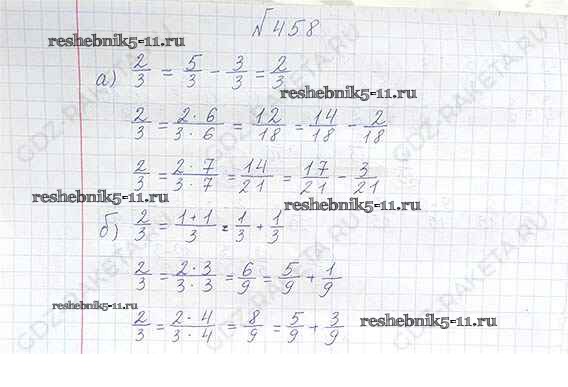 №458
reshebnik5-11.ru
а) 2/3 = 5/3 - 3/3 = 2/3
reshebnik5-11.ru
2/3 = 2·6/3·6 = 12/18 = 14/18 - 2/18
2/3 = 2·7/3·7 = 14/21 = 17/21 - 3/21
reshebnik5-11.ru
reshebnik5-11.ru
б) 2/3 = 1+1/3 = 1/3 + 1/3
2/3 = 2·3/3·3 = 6/9 = 5/9 + 1/9
reshebnik5-11.ru
2/3 = 2·4/3·4 = 8/9 = 5/9 + 3/9
reshebnik5-11.ru
GDZ-RAKETA.RU
GDZ-RAKETA.RU
GDZ-RAKETA.RU
GDZ-RAKETA.RU